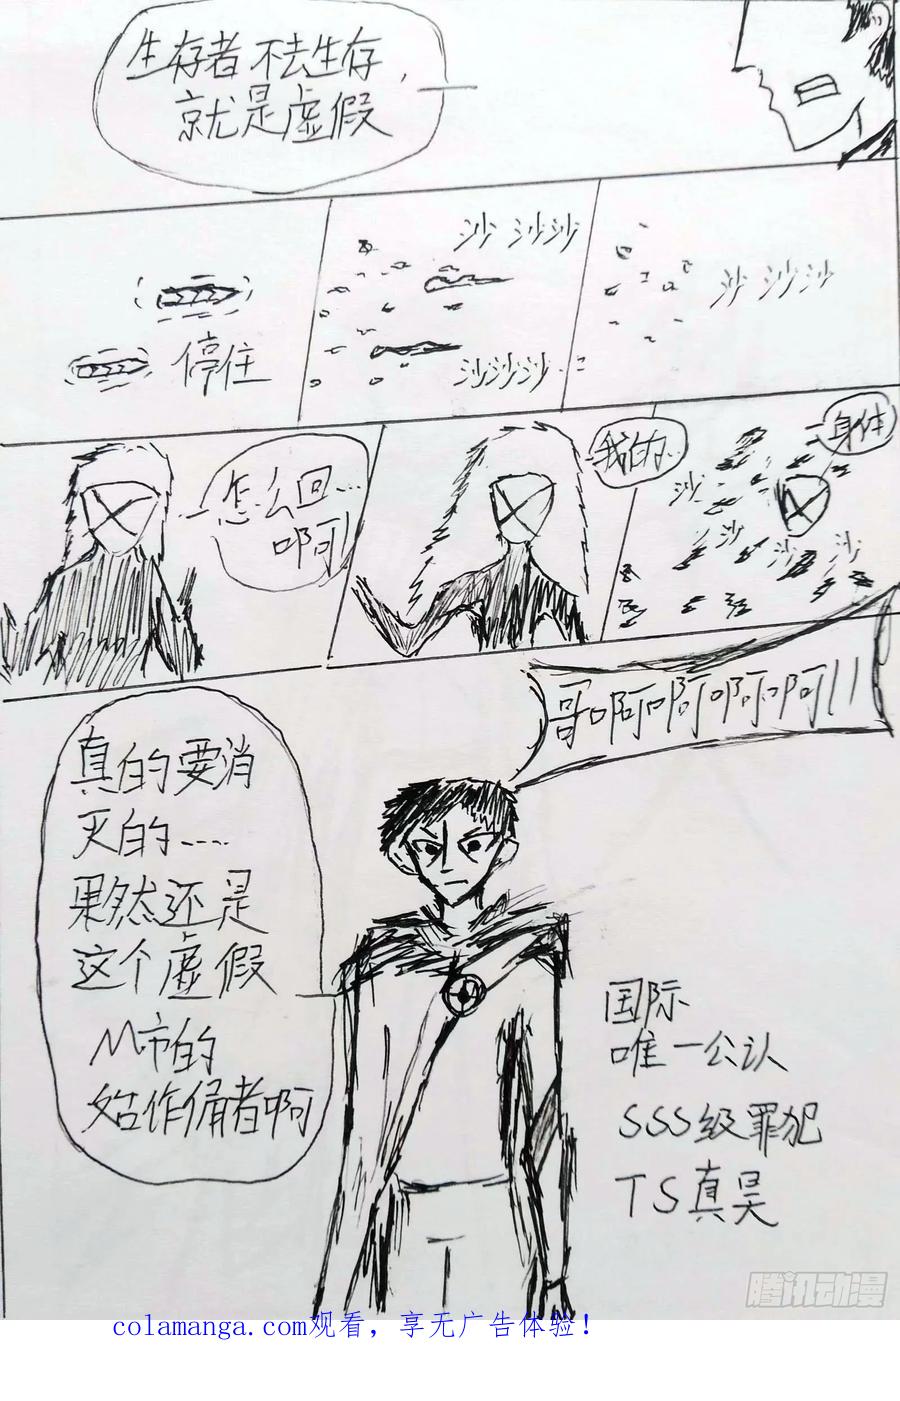 生存者不去生存,
就是虚假
停住
沙 沙沙
沙沙沙...
沙 沙沙
怎么回...
啊!
我的...
身体
沙
沙
沙
沙
哥啊啊啊啊!!
真的要消
灭的....
果然还是
这个虚假
M市的
始作俑者啊
国际
唯一公认
SSS级罪犯
TS真昊
腾讯动漫
colamanga.com观看，享无广告体验!